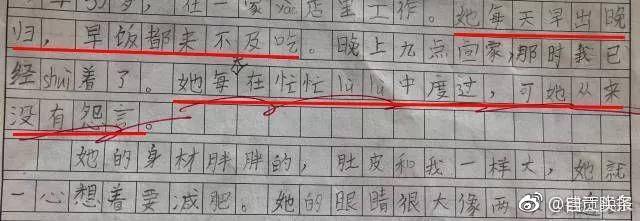 岁，在一家yao店里工作。她每天早出晚
归，早饭都来不及吃。晚上九点回家，那时我已
经shuì着了。她每天在忙忙lù lù中度过，可她从来
没有怨言。
她的身材胖胖的，肚皮和我一样大，她就
一心想着要减肥。她的眼睛很大像两
@自贡映条